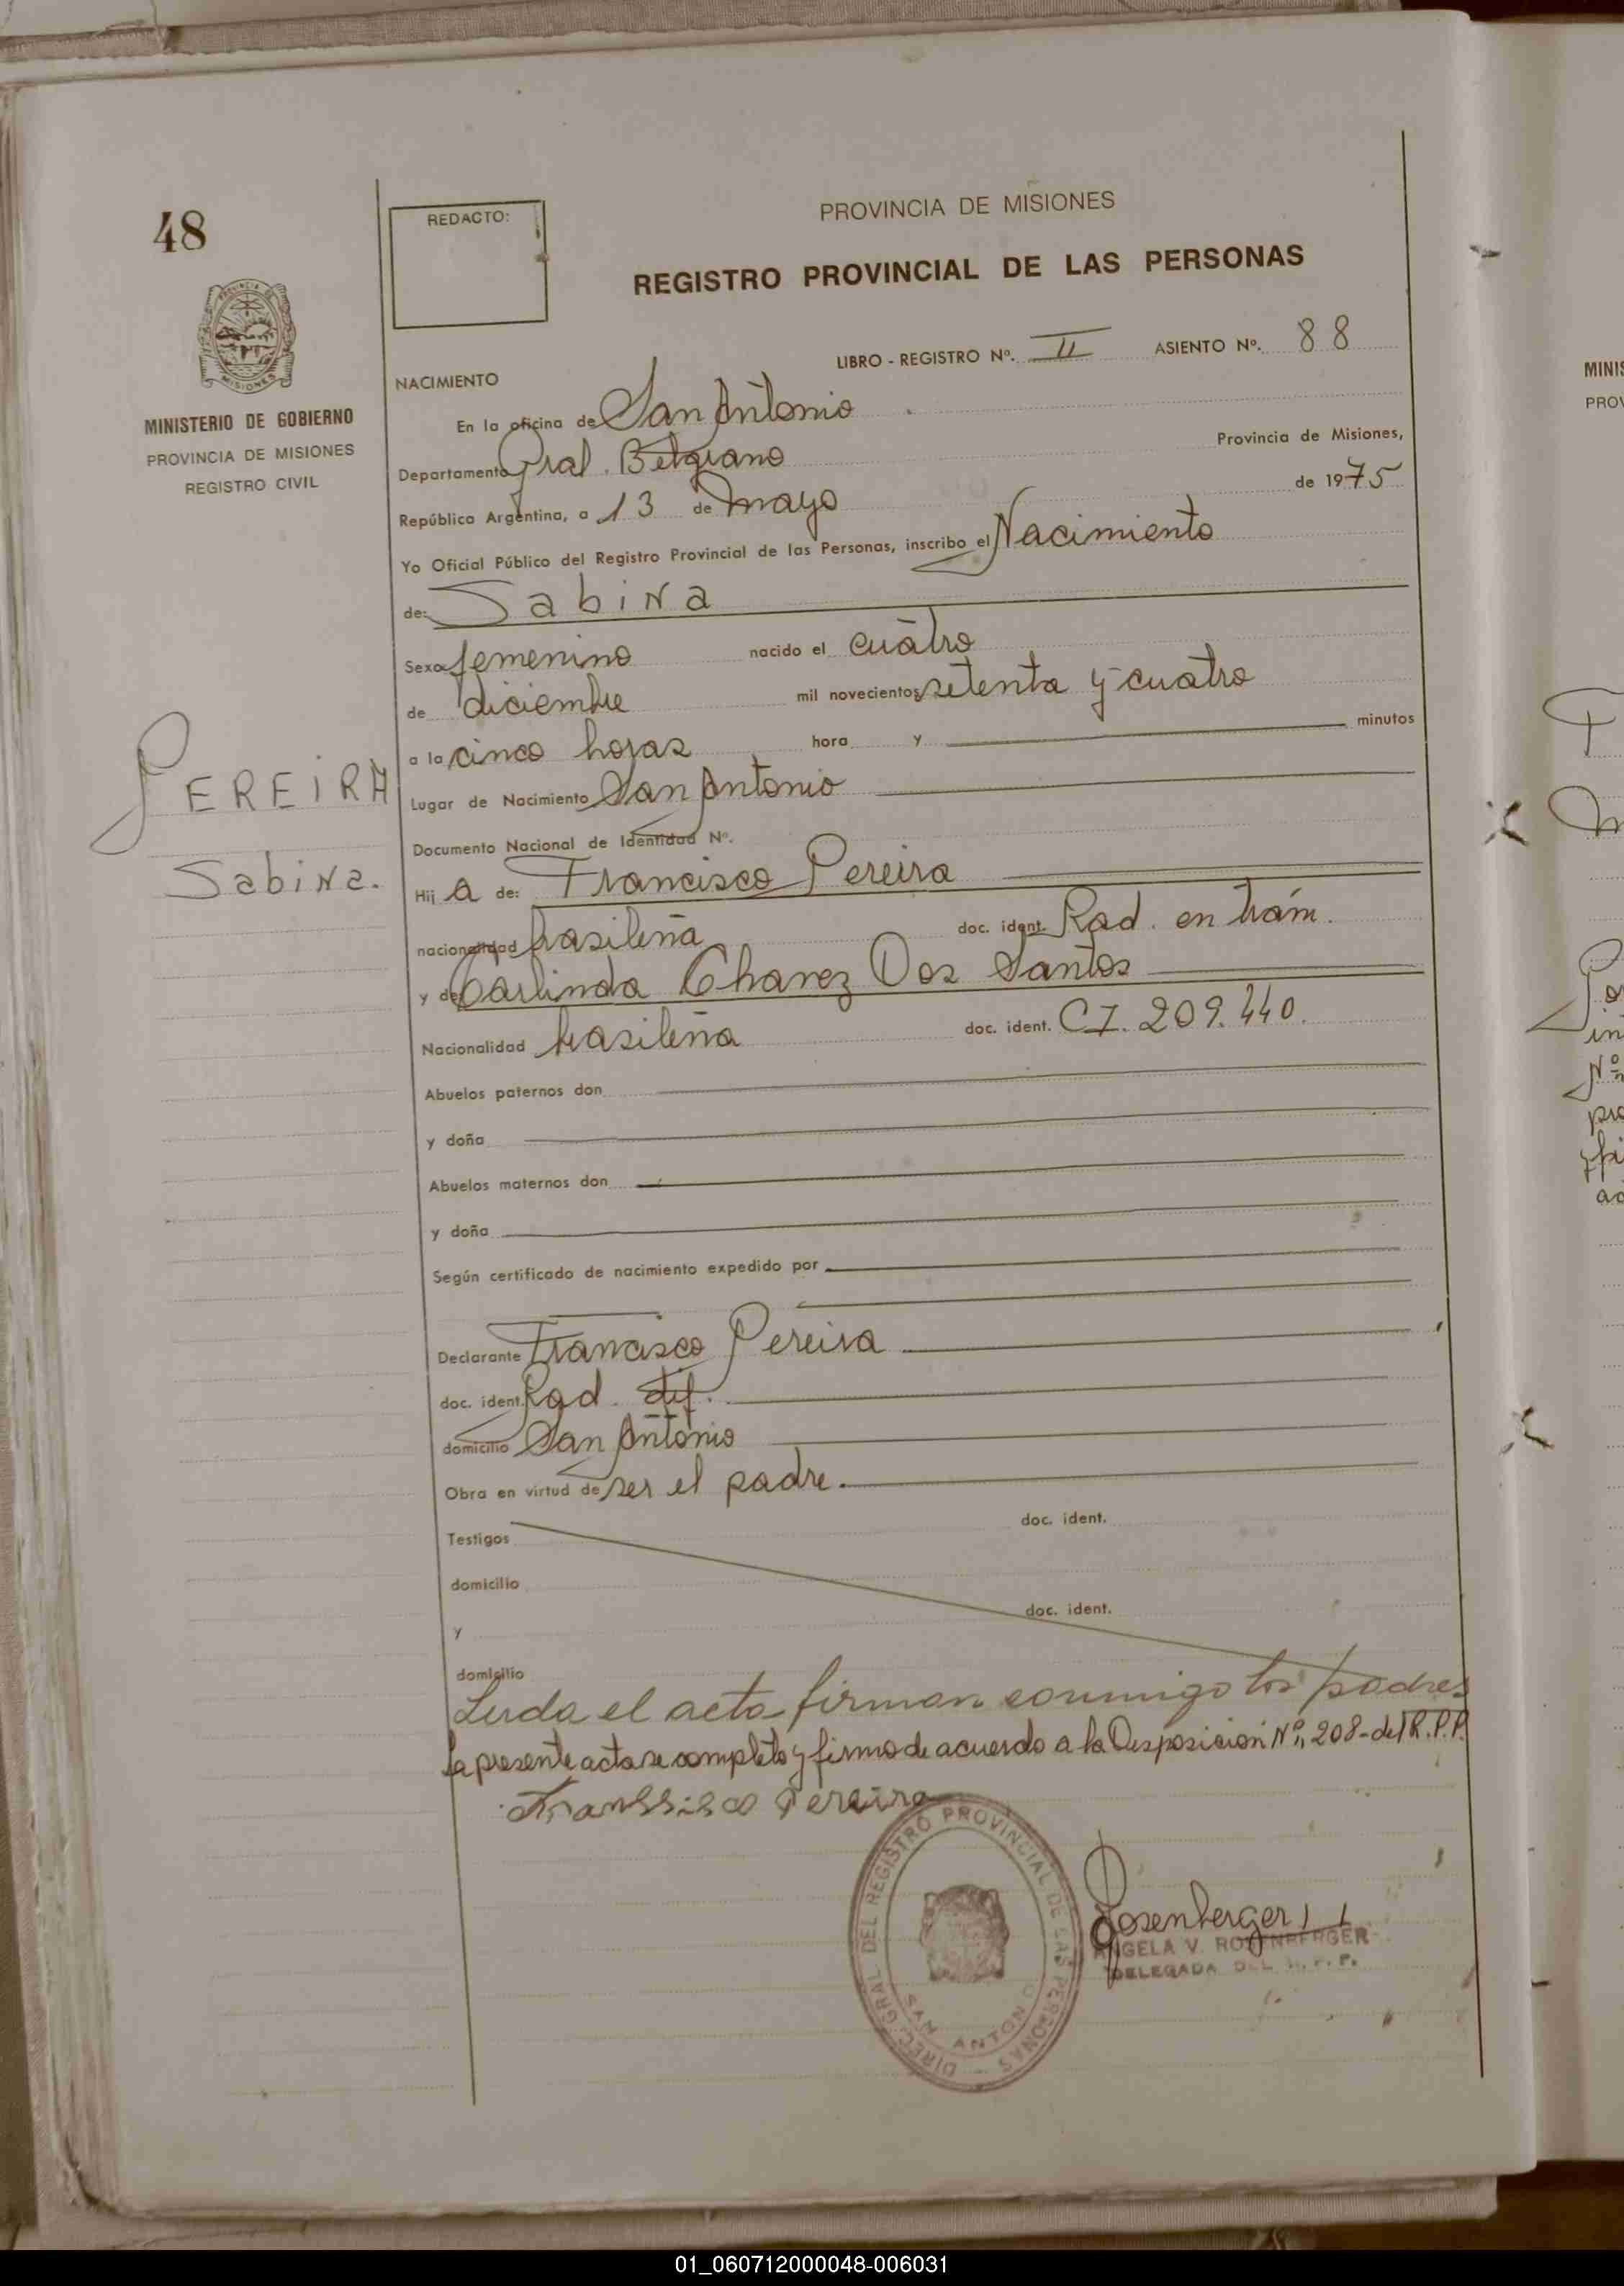 48
REDACTO:
PROVINCIA DE MISIONES
REGISTRO PROVINCIAL DE LAS PERSONAS
PROVINCIA DE
MISIONES
MINISTERIO DE GOBIERNO
PROVINCIA DE MISIONES
REGISTRO CIVIL
LIBRO - REGISTRO Nº. II ASIENTO Nº. 88
NACIMIENTO
En la oficina de San Antonio
Departamento Gral. Belgrano Provincia de Misiones,
República Argentina, a 13 de mayo de 1975
Yo Oficial Público del Registro Provincial de las Personas, inscribo el Nacimiento
de: Sabina
Sexo femenino nacido el cuatro
de diciembre mil novecientos setenta y cuatro
a la cinco horas hora y minutos
PEREIRA
Sabina.
Lugar de Nacimiento San Antonio
Documento Nacional de Identidad Nº.
Hij a de: Francisco Pereira
nacionalidad brasileña doc. ident. Rad. en trám.
y de Carlinda Chavez Dos Santos
Nacionalidad brasileña doc. ident. CI. 209.440.
Abuelos paternos don
y doña
Abuelos maternos don
y doña
Según certificado de nacimiento expedido por
Declarante Francisco Pereira
doc. ident. Rad. def.
domicilio San Antonio
Obra en virtud de ser el padre.
Testigos doc. ident.
domicilio
y doc. ident.
domicilio
Leida el acta firman conmigo los padres
la presente acta se completo y firmo de acuerdo a la Disposicion Nº 208-del R.P.P.
Franssisco Pereira
DIREC. GRAL DEL REGISTRO PROVINCIAL DE LAS PERSONAS
SAN ANTONIO
Rosenberger
ANGELA V. ROSENBERGER
DELEGADA DEL R.P.P.
MINIS
PROV
01_060712000048-006031